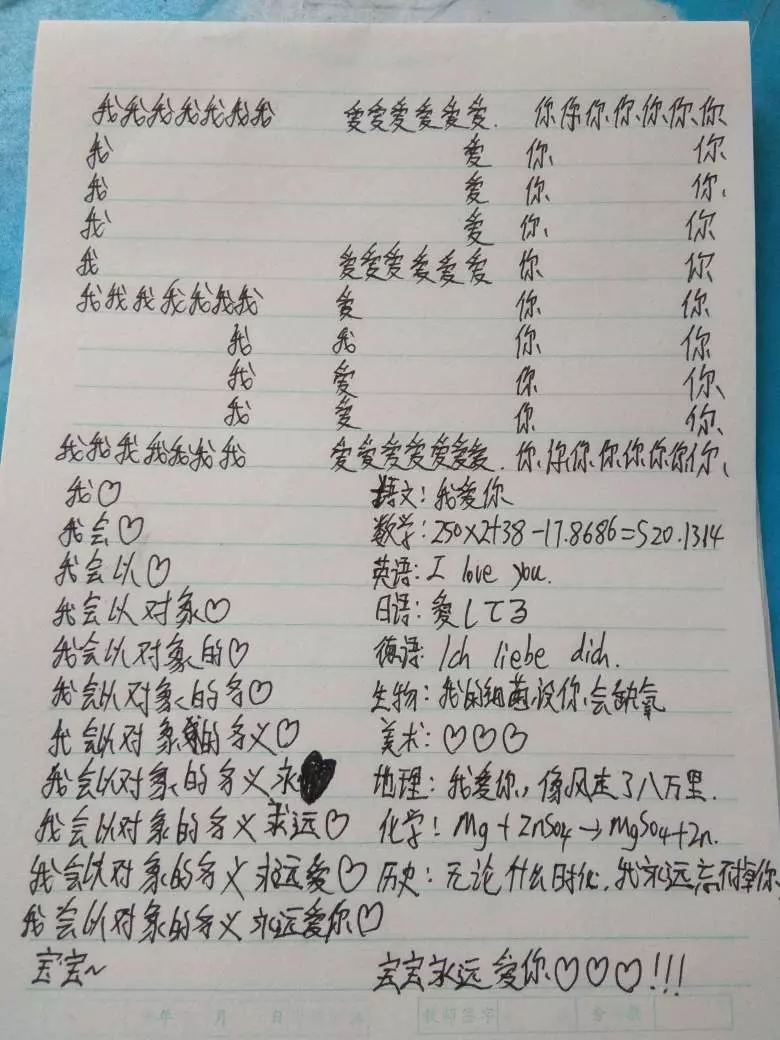 我我我我我我我 爱爱爱爱爱爱. 你你你你你你你
我 爱 你 你
我 爱 你 你
我 爱 你 你
我 爱爱爱爱爱爱 你 你
我我我我我我我 爱 你 你
我 我 你 你
我 爱 你 你
我 爱 你 你
我我我我我我我 爱爱爱爱爱爱爱. 你你你你你你你你
我♡ 语文：我爱你
我会♡ 数学：250×2+38-17.8686=520.1314
我会以♡ 英语：I love you.
我会以对象♡ 日语：愛してる
我会以对象的♡ 德语：Ich liebe dich.
我会以对象的名♡ 生物：我的细菌没你会缺氧
我会以对象的名义♡ 美术：♡♡♡
我会以对象的名义永 地理：我爱你，像风走了八万里.
我会以对象的名义永远♡ 化学：Mg+ZnSO4→MgSO4+Zn.
我会以对象的名义永远爱♡ 历史：无论什么时代，我永远忘不掉你
我会以对象的名义永远爱你♡
宝宝~ 宝宝永远爱你♡♡♡!!!
年 月 日 教师签字